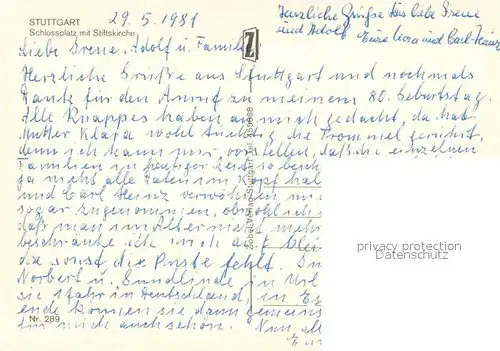 STUTTGART
Schlossplatz mit Stiftskirche
29.5.1981
Herzliche Grüße für liebe Irene
und Adolf Eure Cora und Carl-Heinz
Liebe Irene, Adolf u. Familie
Herzliche Grüße aus Stuttgart und nochmals
Dank für den Anruf zu meinem 80. Geburtstag.
Alle Knappes haben an mich gedacht, da hat
Mutter Klara wohl tüchtig die Trommel gerührt,
denn ich kann mir vorstellen, daß die einzelnen
Familien in heutiger Zeit so besch
ja nicht alle Daten im Kopf hal
und Carl Heinz verwöhnen mi
sogar zugenommen, obwohl ich
daß man im Alter nicht mehr
beschränke ich mich auf
da sonst die Puste fehlt. In
Norbert u. Gundlinde in Wil
sie 1 Jahr in Deutschland, in
ende können sie dann gemeins
für mich auch schön. Nun, all
Nr. 289
Zobel-Verlag Stuttgart Tel.
privacy protection
privacy protection